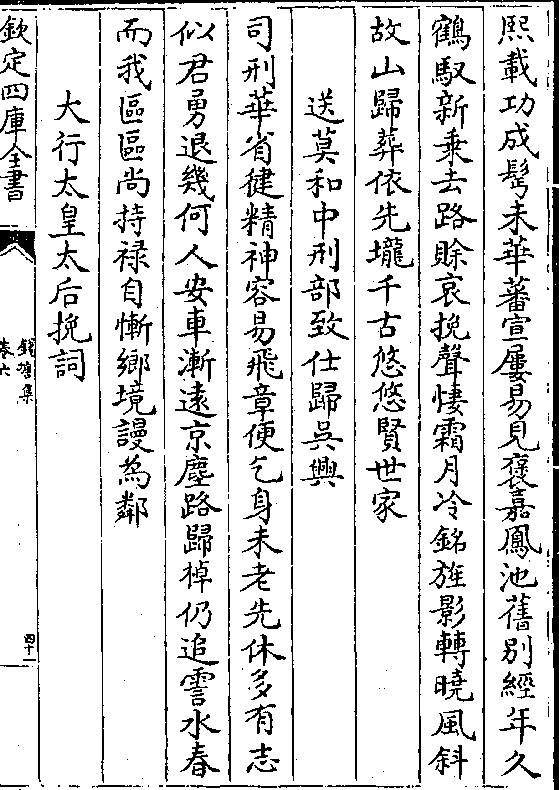 熙載功成髩未華蕃宣屢易見褒嘉鳳池舊别經年久
鶴馭新乗去路賖哀挽聲悽霜月冷銘旌影轉曉風斜
故山歸葬依先壠千古悠悠賢世家
送莫和中刑部致仕歸吳興
司刑華省健精神容易飛章便乞身未老先休多有志
似君勇退幾何人安車漸遠京塵路歸棹仍追霅水春
而我區區尚持禄自慚鄉境謾為鄰
大行太皇太后挽詞
欽定四庫全書
錢塘集
卷六
四十一